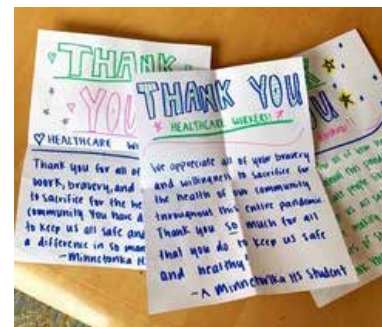 THANK
YOU
HEALTHCARE
Thank you for all of
work, bravery, and
to sacrifice for the he
community. You have d
to keep us all safe and
a difference in so man
-Minnetonka HS
THANK YOU
HEALTHCARE WORKERS!
We appreciate all of your bravery
and willingness to sacrifice for
the health of our community
throughout this entire pandemic.
Thank you so much for all
that you do to keep us safe
and healthy.
-A Minnetonka HS Student
OU